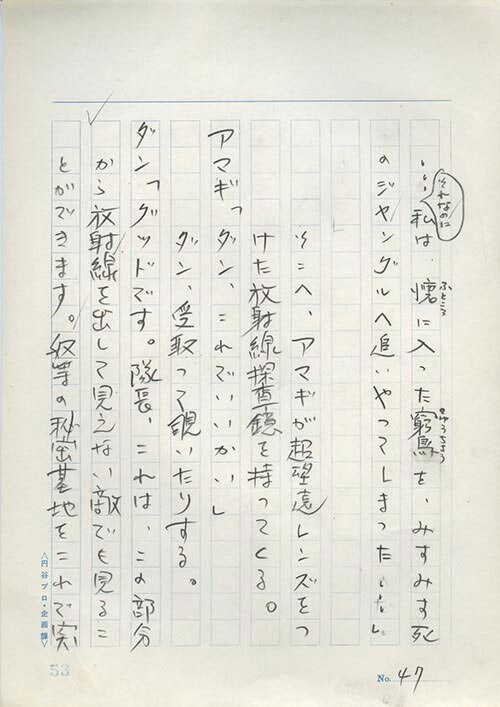 それなのに
‥‥私は、懐に入った窮鳥を、みすみす死
ふところ
きゅうちょう
のジャングルへ追いやってしまった‥‥」
そこへ、アマギが超望遠レンズをつ
けた放射線探査鏡を持ってくる。
アマギ「ダン、これでいいかい」
ダン、受取って覗いたりする。
ダン「グッドです。隊長、これは、この部分
から放射線を出して見えない敵でも見るこ
とができます。奴等の秘密基地をこれで突
<円谷プロ・企画課>
53
No. 47